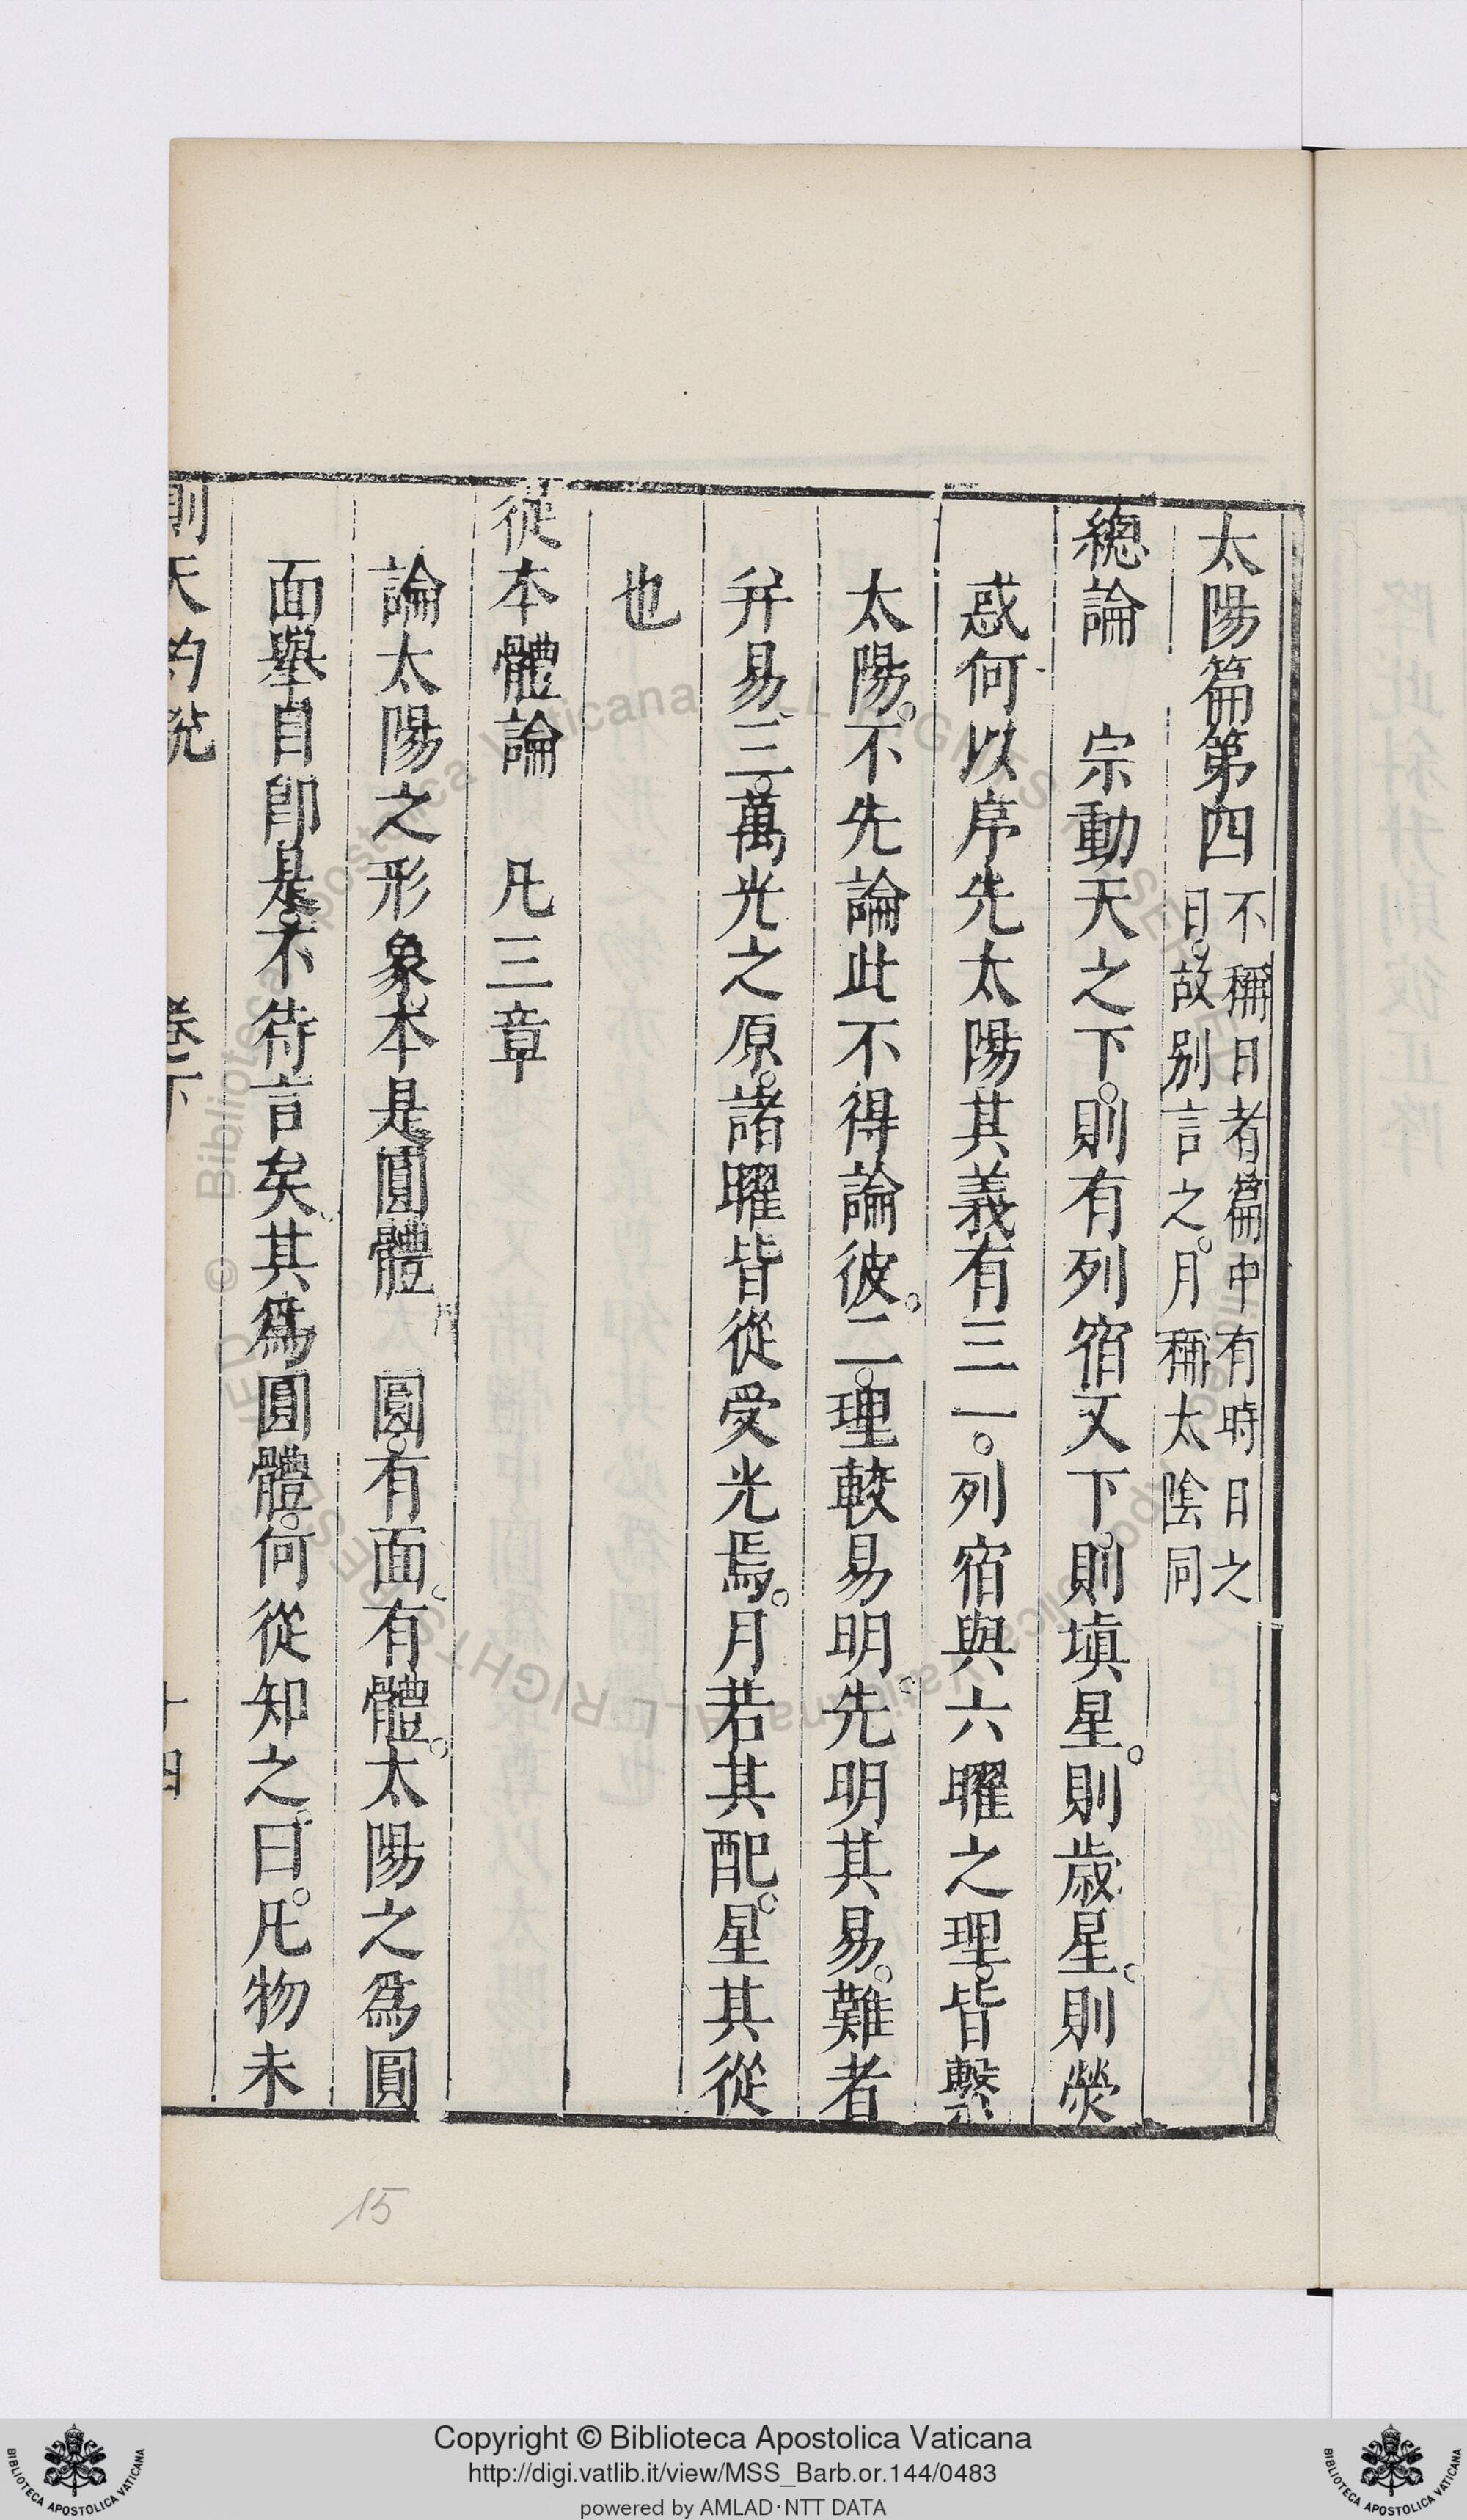 太陽篇第四 不稱日者篇中有時日之
日。故別言之。月稱太陰同
總論 宗動天之下。則有列宿又下。則塡星。則歲星。則熒
惑何以序先太陽其義有三一。列宿與六曜之理。皆繫
太陽。不先論此不得論彼。二。理較易明。先明其易。難者
幷易。三。萬光之原。諸曜皆從受光焉。月若其配。星其從
也
從本體論 凡三章
論太陽之形象。本是圓體 圓。有面。有體。太陽之爲圓
面舉目卽是。不待言矣。其爲圓體。何從知之。曰。凡物未
則天約說 卷下 十四
15
Copyright © Biblioteca Apostolica Vaticana
http://digi.vatlib.it/view/MSS_Barb.or.144/0483
powered by AMLAD·NTT DATA
BIBLIOTECA APOSTOLICA VATICANA
BIBLIOTECA APOSTOLICA VATICANA